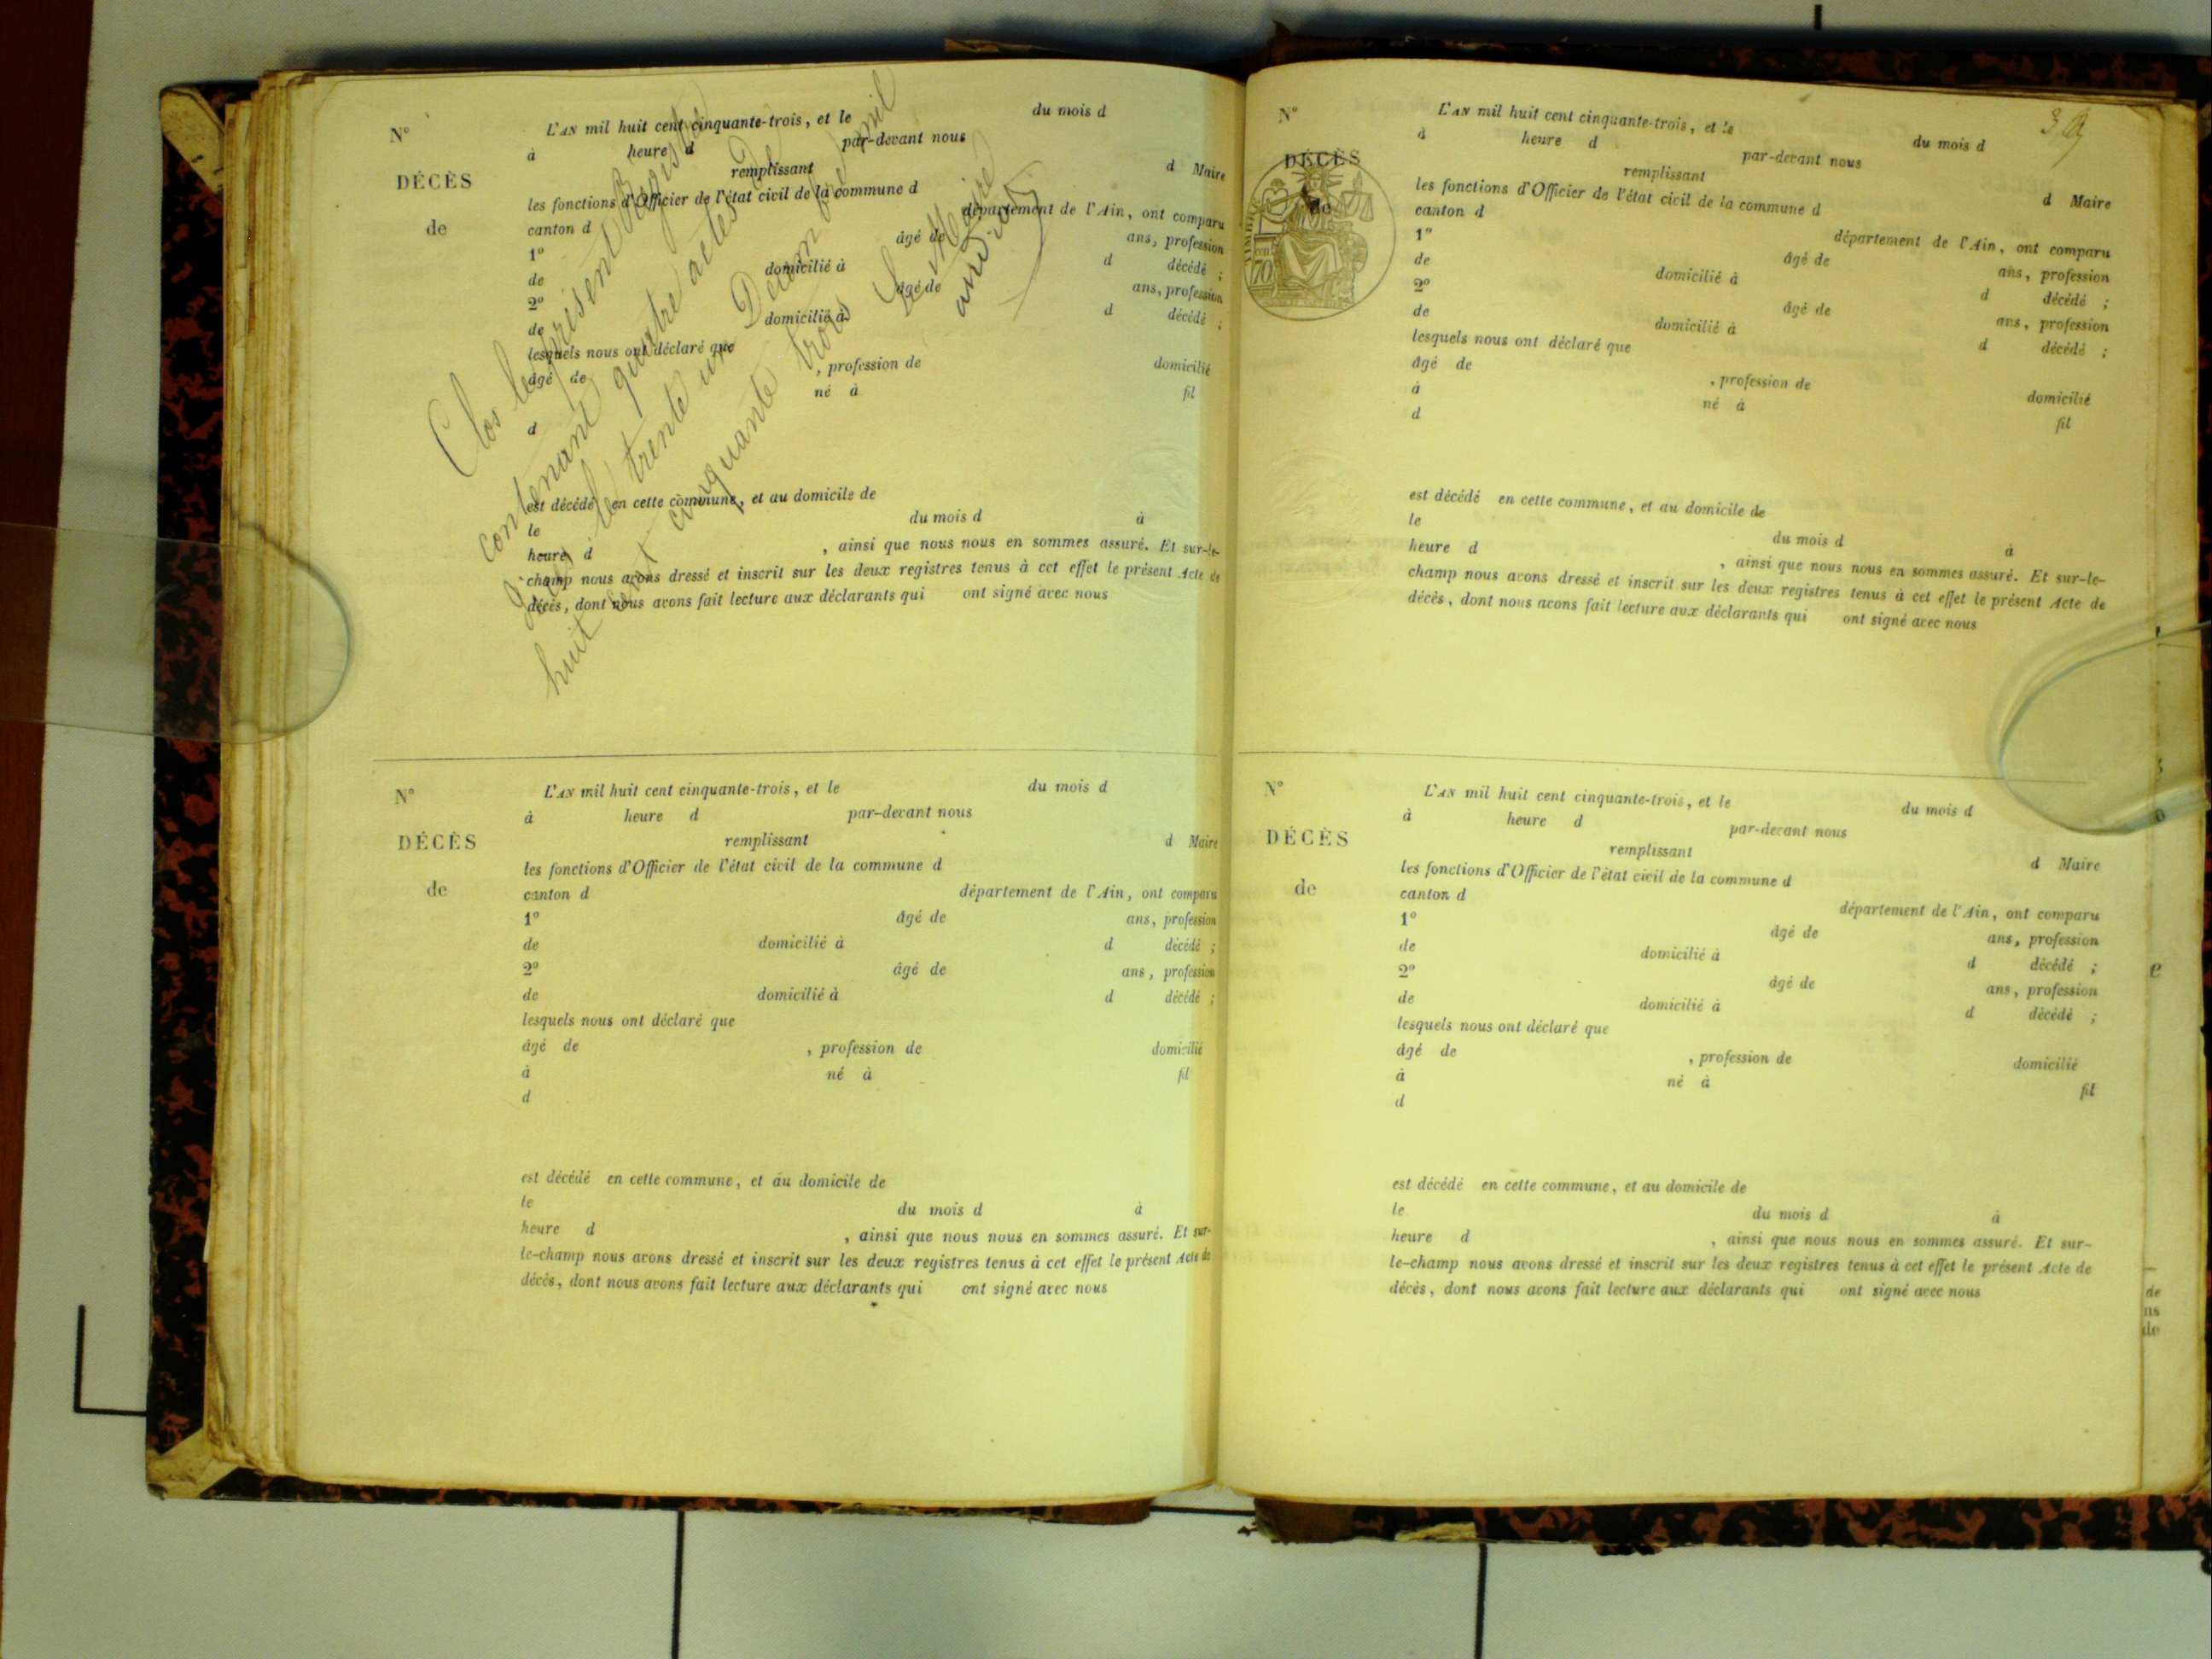 N°
DÉCÈS
de
L'AN mil huit cent cinquante-trois, et le du mois d
à heure d par-devant nous
remplissant d Maire
les fonctions d'Officier de l'état civil de la commune d
canton d département de l'Ain, ont comparu
1° âgé de ans, profession
de domicilié à d décédé ;
2° âgé de ans, profession
de domicilié à d décédé ;
lesquels nous ont déclaré que
âgé de , profession de domicilié
né à fil
d
est décédé en cette commune, et au domicile de
le du mois d à
heure d , ainsi que nous nous en sommes assuré. Et sur-le-
champ nous avons dressé et inscrit sur les deux registres tenus à cet effet le présent Acte de
décès, dont nous avons fait lecture aux déclarants qui ont signé avec nous
Clos le présent Registre
contenant quatre actes de
Décès le trente un Décembre mil
huit cent cinquante trois
Le Maire
N°
DÉCÈS
de
L'AN mil huit cent cinquante-trois, et le du mois d
à heure d par-devant nous
remplissant d Maire
les fonctions d'Officier de l'état civil de la commune d
canton d département de l'Ain, ont comparu
1° âgé de ans, profession
de domicilié à d décédé ;
2° âgé de ans, profession
de domicilié à d décédé ;
lesquels nous ont déclaré que
âgé de , profession de domicilié
à né à fil
d
est décédé en cette commune, et au domicile de
le du mois d à
heure d , ainsi que nous nous en sommes assuré. Et sur-
le-champ nous avons dressé et inscrit sur les deux registres tenus à cet effet le présent Acte de
décès, dont nous avons fait lecture aux déclarants qui ont signé avec nous
N°
DÉCÈS
de
70
L'AN mil huit cent cinquante-trois, et le du mois d
à heure d par-devant nous
remplissant d Maire
les fonctions d'Officier de l'état civil de la commune d
canton d département de l'Ain, ont comparu
1° âgé de ans, profession
de domicilié à d décédé ;
2° âgé de ans, profession
de domicilié à d décédé ;
lesquels nous ont déclaré que
âgé de , profession de domicilié
à né à fil
d
est décédé en cette commune, et au domicile de
le du mois d à
heure d , ainsi que nous nous en sommes assuré. Et sur-le-
champ nous avons dressé et inscrit sur les deux registres tenus à cet effet le présent Acte de
décès, dont nous avons fait lecture aux déclarants qui ont signé avec nous
N°
DÉCÈS
de
L'AN mil huit cent cinquante-trois, et le du mois d
à heure d par-devant nous
remplissant d Maire
les fonctions d'Officier de l'état civil de la commune d
canton d département de l'Ain, ont comparu
1° âgé de ans, profession
de domicilié à d décédé ;
2° âgé de ans, profession
de domicilié à d décédé ;
lesquels nous ont déclaré que
âgé de , profession de domicilié
à né à fil
d
est décédé en cette commune, et au domicile de
le du mois d à
heure d , ainsi que nous nous en sommes assuré. Et sur-
le-champ nous avons dressé et inscrit sur les deux registres tenus à cet effet le présent Acte de
décès, dont nous avons fait lecture aux déclarants qui ont signé avec nous
e
de
ns
de